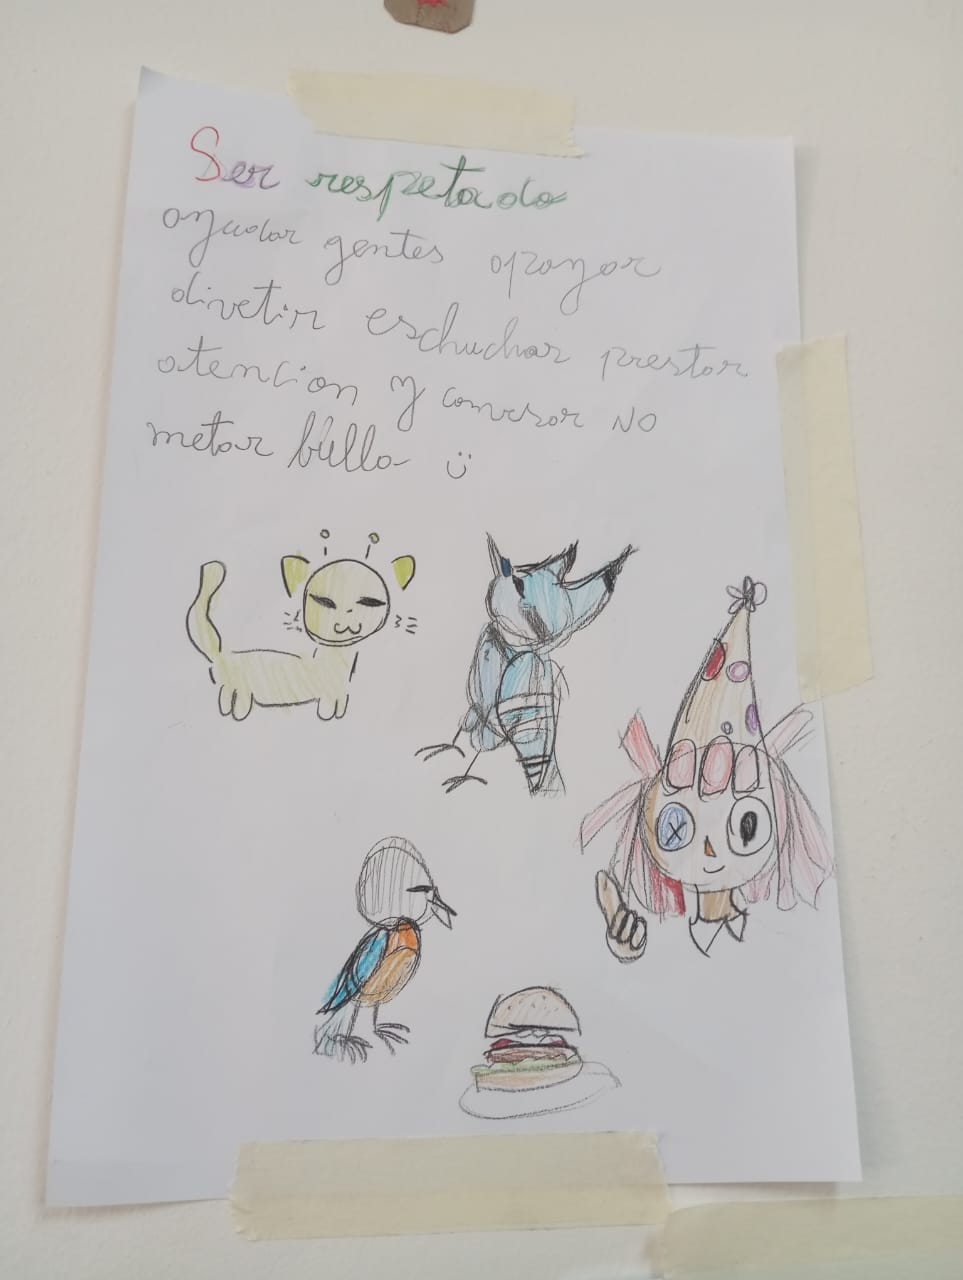 Ser respetado
ayudar gentes apoyar
divetir eschuchar prestar
atencion y convesar NO
metar bulla